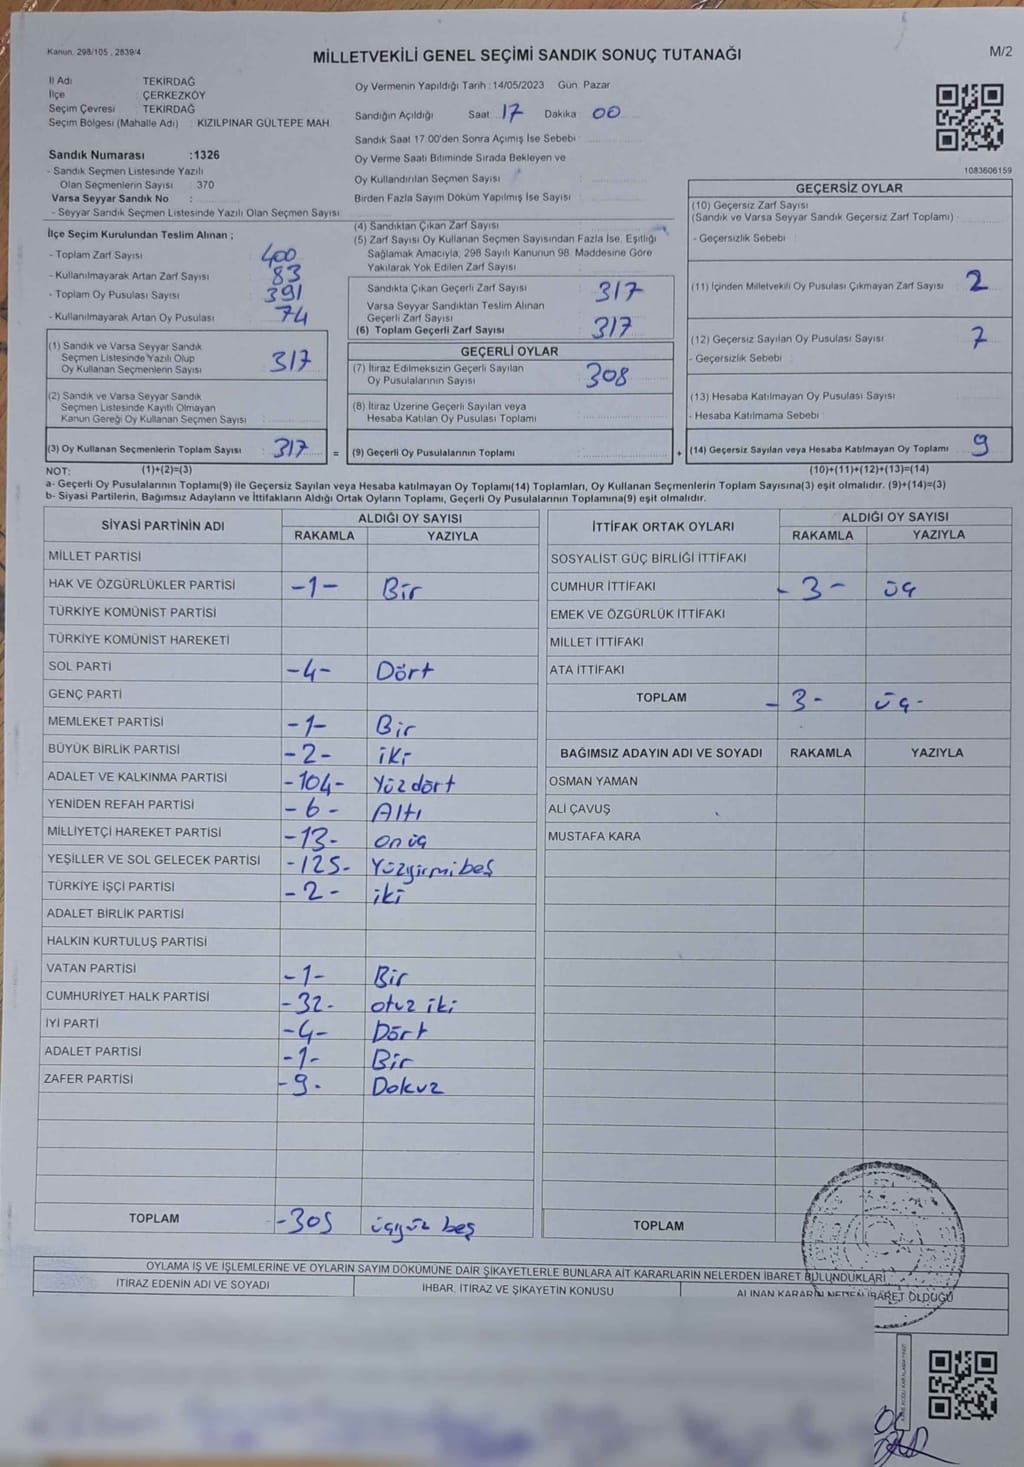 Kanun. 298/105 , 2839/4
MİLLETVEKİLİ GENEL SEÇİMİ SANDIK SONUÇ TUTANAĞI
M/2
İl Adı TEKİRDAĞ
İlçe ÇERKEZKÖY
Seçim Çevresi TEKİRDAĞ
Seçim Bölgesi (Mahalle Adı) : KIZILPINAR GÜLTEPE MAH.
Sandık Numarası :1326
- Sandık Seçmen Listesinde Yazılı
Olan Seçmenlerin Sayısı : 370
Varsa Seyyar Sandık No :
- Seyyar Sandık Seçmen Listesinde Yazılı Olan Seçmen Sayısı :
İlçe Seçim Kurulundan Teslim Alınan ;
- Toplam Zarf Sayısı : 400
- Kullanılmayarak Artan Zarf Sayısı : 83
- Toplam Oy Pusulası Sayısı : 391
- Kullanılmayarak Artan Oy Pusulası : 74
(1) Sandık ve Varsa Seyyar Sandık
Seçmen Listesinde Yazılı Olup
Oy Kullanan Seçmenlerin Sayısı : 317
(2) Sandık ve Varsa Seyyar Sandık
Seçmen Listesinde Kayıtlı Olmayan
Kanun Gereği Oy Kullanan Seçmen Sayısı :
(3) Oy Kullanan Seçmenlerin Toplam Sayısı : 317 =
Oy Vermenin Yapıldığı Tarih :14/05/2023 Gün Pazar
Sandığın Açıldığı Saat : 17 Dakika 00
Sandık Saat 17:00'den Sonra Açımış İse Sebebi :
Oy Verme Saati Bitiminde Sırada Bekleyen ve
Oy Kullandırılan Seçmen Sayısı :
Birden Fazla Sayım Döküm Yapılmış İse Sayısı :
(4) Sandıktan Çıkan Zarf Sayısı :
(5) Zarf Sayısı Oy Kullanan Seçmen Sayısından Fazla İse, Eşitliği
Sağlamak Amacıyla, 298 Sayılı Kanunun 98. Maddesine Göre
Yakılarak Yok Edilen Zarf Sayısı :
Sandıkta Çıkan Geçerli Zarf Sayısı : 317
Varsa Seyyar Sandıktan Teslim Alınan
Geçerli Zarf Sayısı :
(6) Toplam Geçerli Zarf Sayısı : 317
GEÇERLİ OYLAR
(7) İtiraz Edilmeksizin Geçerli Sayılan
Oy Pusulalarının Sayısı : 308
(8) İtiraz Üzerine Geçerli Sayılan veya
Hesaba Katılan Oy Pusulası Toplamı :
(9) Geçerli Oy Pusulalarının Toplamı : +
1083606159
GEÇERSİZ OYLAR
(10) Geçersiz Zarf Sayısı
(Sandık ve Varsa Seyyar Sandık Geçersiz Zarf Toplamı) :
- Geçersizlik Sebebi :
(11) İçinden Milletvekili Oy Pusulası Çıkmayan Zarf Sayısı : 2
(12) Geçersiz Sayılan Oy Pusulası Sayısı : 7
- Geçersizlik Sebebi :
(13) Hesaba Katılmayan Oy Pusulası Sayısı :
- Hesaba Katılmama Sebebi :
(14) Geçersiz Sayılan veya Hesaba Katılmayan Oy Toplamı : 9
NOT: (1)+(2)=(3) (10)+(11)+(12)+(13)=(14)
a- Geçerli Oy Pusulalarının Toplamı(9) ile Geçersiz Sayılan veya Hesaba katılmayan Oy Toplamı(14) Toplamları, Oy Kullanan Seçmenlerin Toplam Sayısına(3) eşit olmalıdır. (9)+(14)=(3)
b- Siyasi Partilerin, Bağımsız Adayların ve İttifakların Aldığı Ortak Oyların Toplamı, Geçerli Oy Pusulalarının Toplamına(9) eşit olmalıdır.
SİYASİ PARTİNİN ADI ALDIĞI OY SAYISI
RAKAMLA YAZIYLA
MİLLET PARTİSİ
HAK VE ÖZGÜRLÜKLER PARTİSİ -1- Bir
TÜRKİYE KOMÜNİST PARTİSİ
TÜRKİYE KOMÜNİST HAREKETİ
SOL PARTİ -4- Dört
GENÇ PARTİ
MEMLEKET PARTİSİ -1- Bir
BÜYÜK BİRLİK PARTİSİ -2- iki
ADALET VE KALKINMA PARTİSİ -104- Yüzdört
YENİDEN REFAH PARTİSİ -6- Altı
MİLLİYETÇİ HAREKET PARTİSİ -13- onüç
YEŞİLLER VE SOL GELECEK PARTİSİ -125- Yüzyirmibeş
TÜRKİYE İŞÇİ PARTİSİ -2- iki
ADALET BİRLİK PARTİSİ
HALKIN KURTULUŞ PARTİSİ
VATAN PARTİSİ -1- Bir
CUMHURİYET HALK PARTİSİ -32- otuz iki
İYİ PARTİ -4- Dört
ADALET PARTİSİ -1- Bir
ZAFER PARTİSİ -9- Dokuz
TOPLAM -305 üçyüz beş
İTTİFAK ORTAK OYLARI ALDIĞI OY SAYISI
RAKAMLA YAZIYLA
SOSYALİST GÜÇ BİRLİĞİ İTTİFAKI
CUMHUR İTTİFAKI -3- üç
EMEK VE ÖZGÜRLÜK İTTİFAKI
MİLLET İTTİFAKI
ATA İTTİFAKI
TOPLAM -3- üç-
BAĞIMSIZ ADAYIN ADI VE SOYADI RAKAMLA YAZIYLA
OSMAN YAMAN
ALİ ÇAVUŞ
MUSTAFA KARA
TOPLAM
OYLAMA İŞ VE İŞLEMLERİNE VE OYLARIN SAYIM DÖKÜMÜNE DAİR ŞİKAYETLERLE BUNLARA AİT KARARLARIN NELERDEN İBARET BULUNDUKLARI
İTİRAZ EDENİN ADI VE SOYADI İHBAR, İTİRAZ VE ŞİKAYETİN KONUSU ALINAN KARARIN NEDEN İBARET OLDUĞU